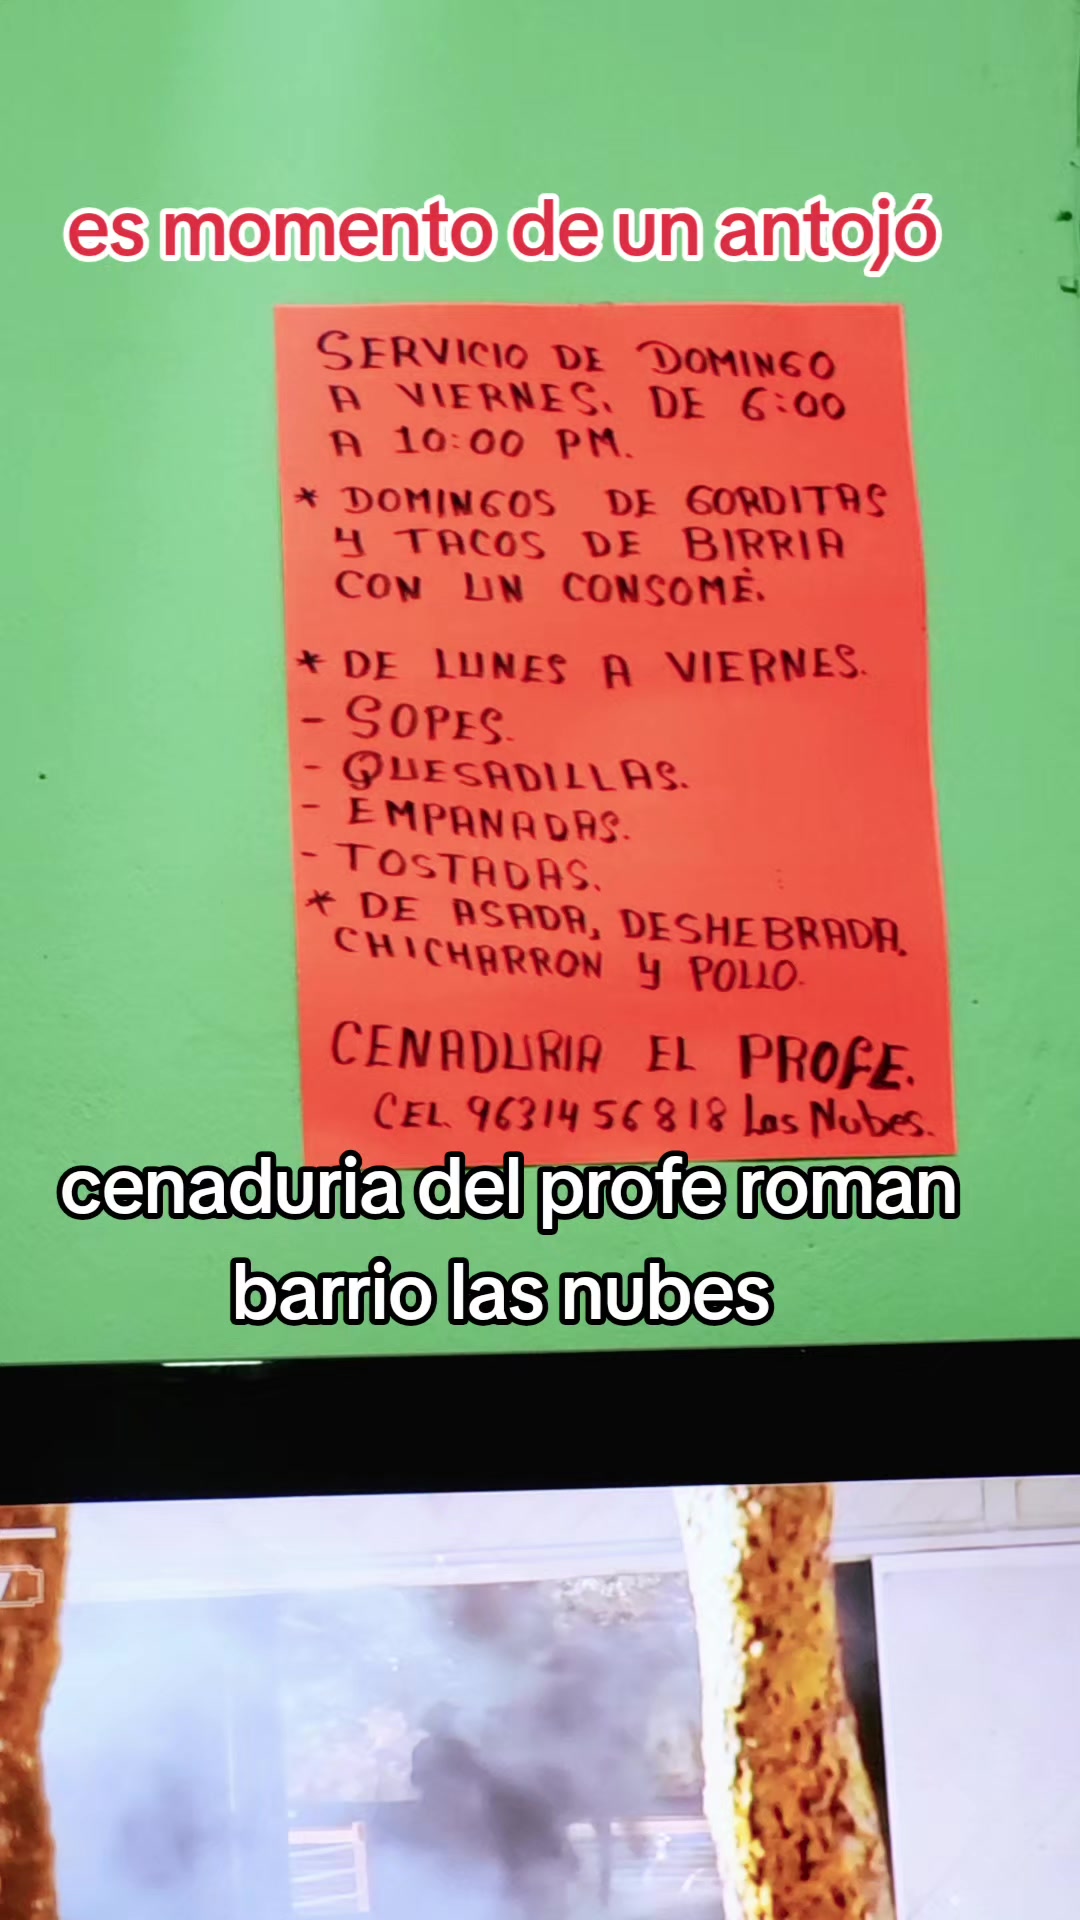 es momento de un antojó
SERVICIO DE DOMINGO
A VIERNES. DE 6:00
A 10:00 PM.
* DOMINGOS DE GORDITAS
Y TACOS DE BIRRIA
CON UN CONSOMÉ.
* DE LUNES A VIERNES.
- SOPES.
- QUESADILLAS.
- EMPANADAS.
- TOSTADAS.
* DE ASADA, DESHEBRADA.
CHICHARRON Y POLLO.
CENADURIA EL PROFE.
CEL. 9631456818 Las Nubes.
cenaduria del profe roman
barrio las nubes